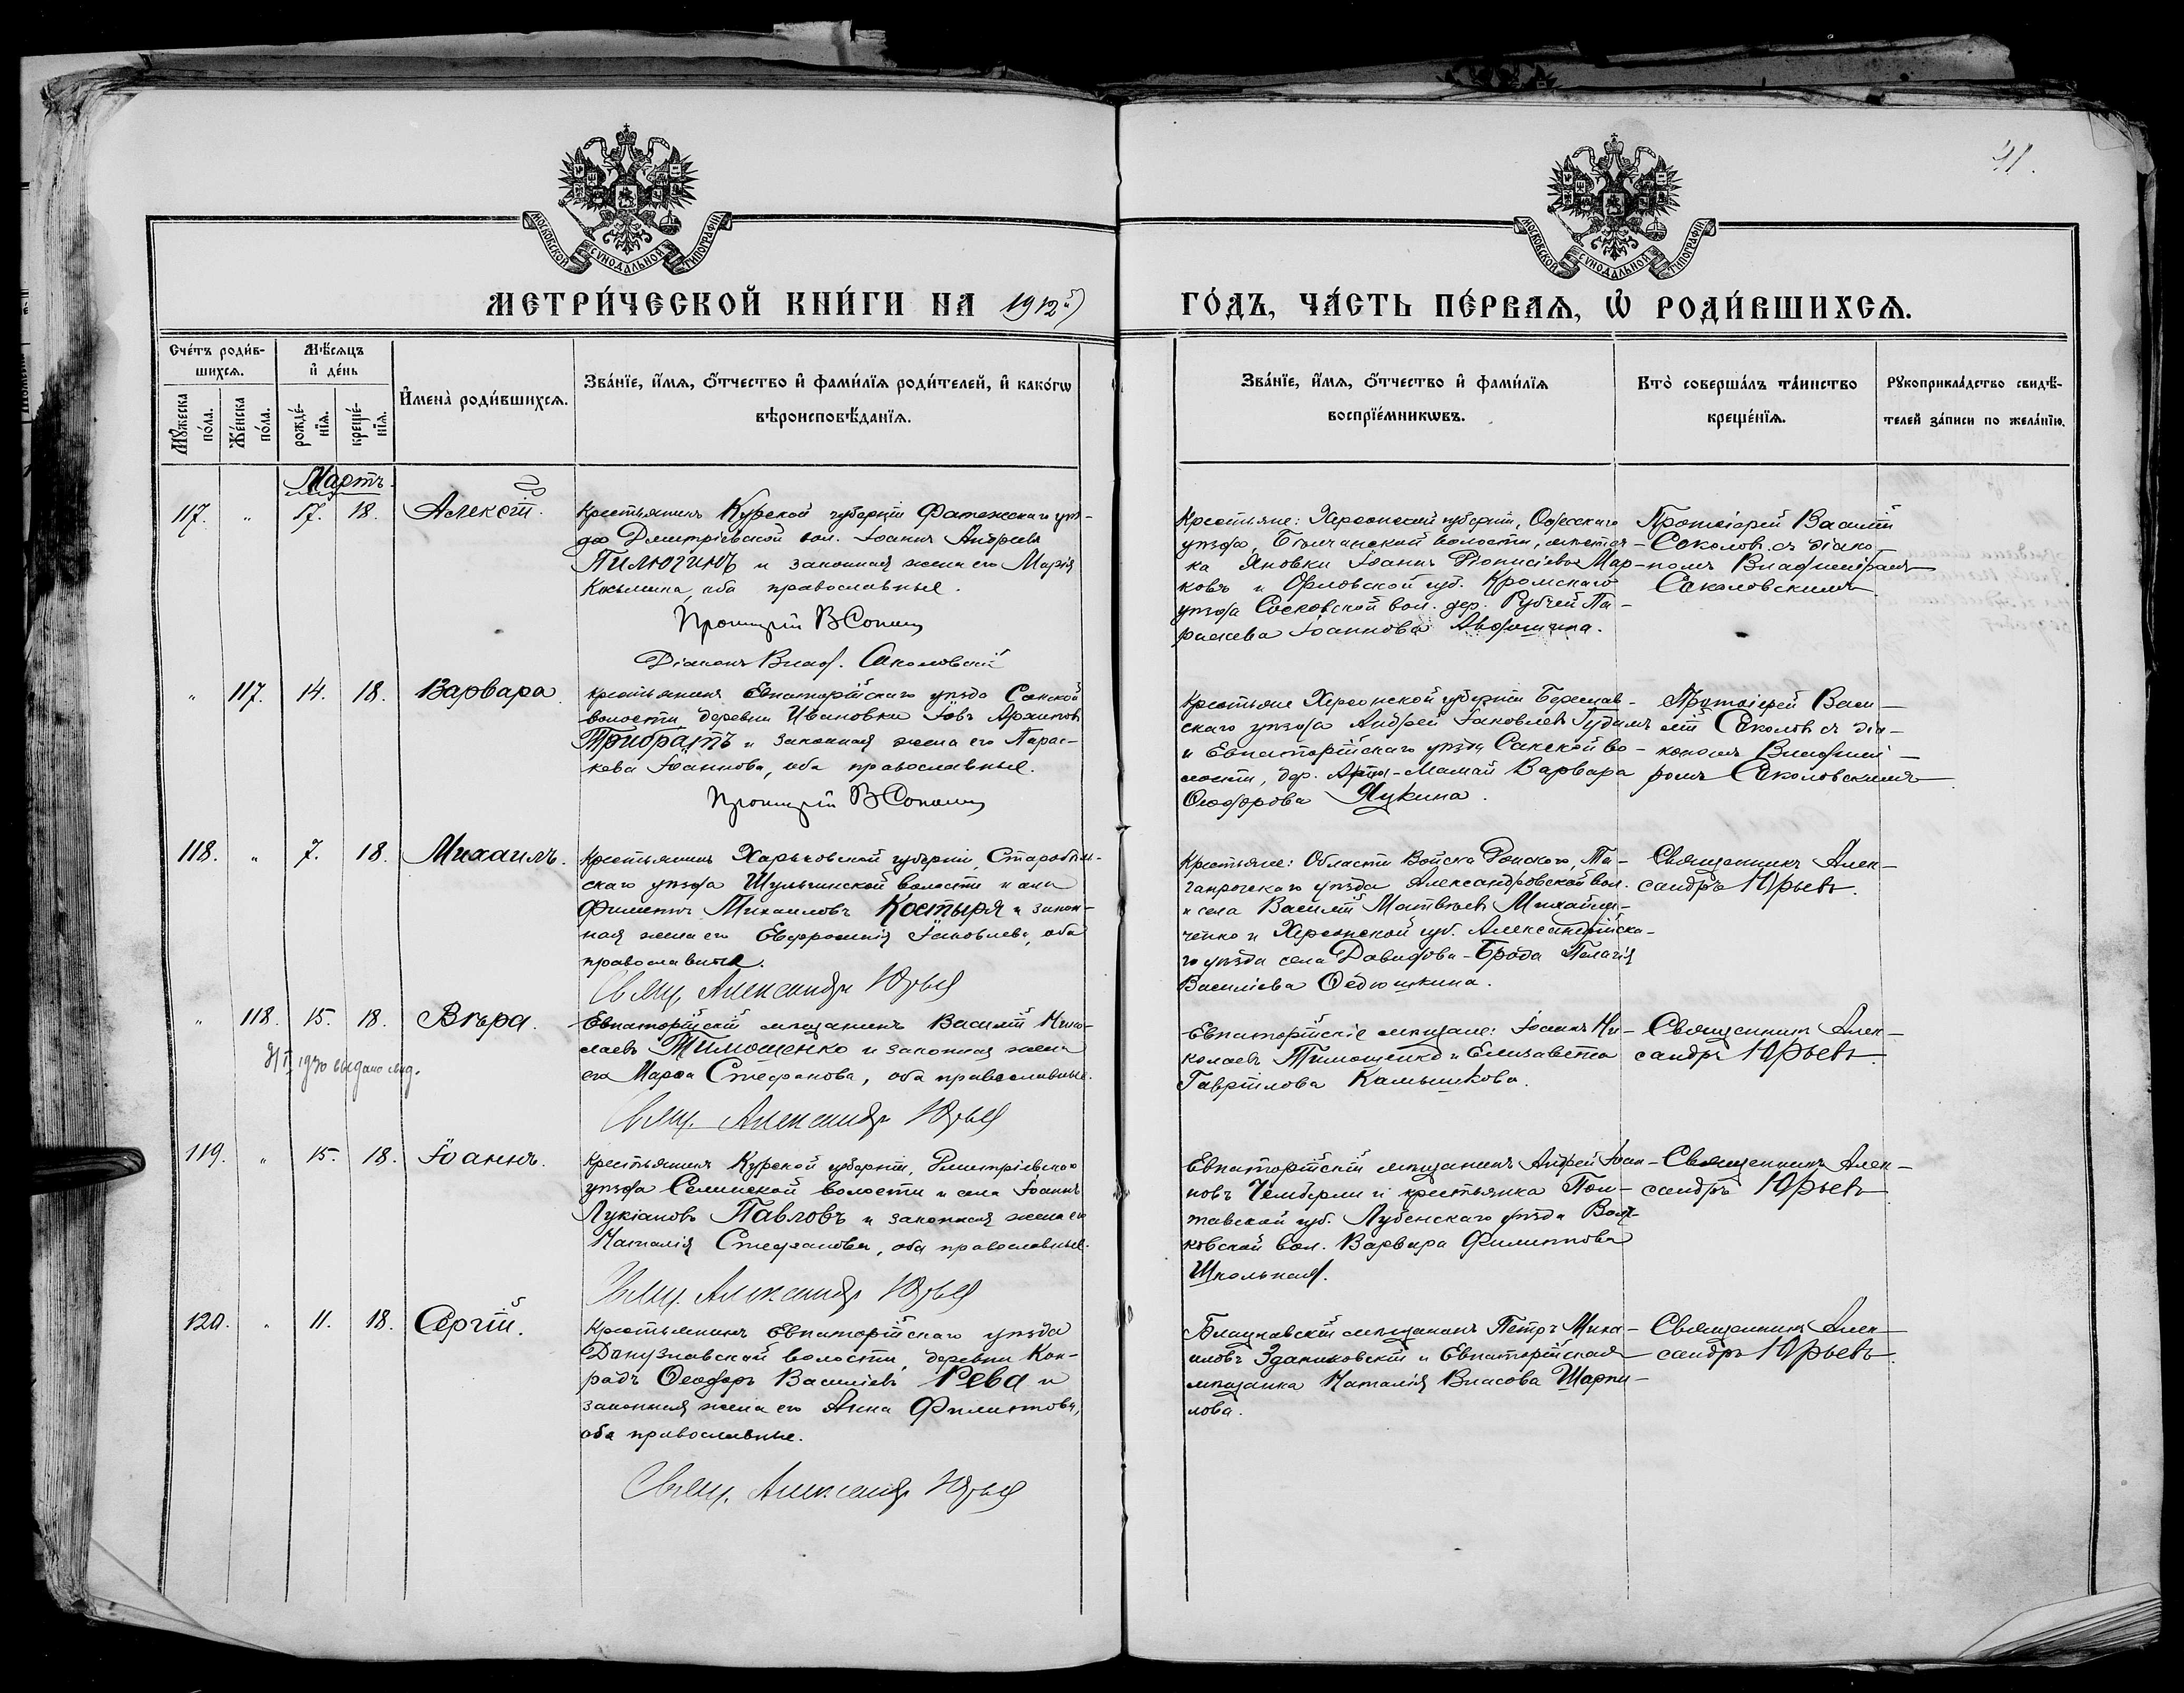 41.
МОСКОВСКОЙ СѴНОДАЛЬНОЙ ТИПОГРАФІИ
МОСКОВСКОЙ СѴНОДАЛЬНОЙ ТИПОГРАФІИ
МЕТРИ́ЧЕСКОЙ КНИ́ГИ НА 1912й
ГО́ДЪ, ЧА́СТЬ ПЕ́РВАѦ, Ѡ҆ РОДИ́ВШИХСѦ.
Сче́тъ роди́в-
шихсѧ.
Мꙋжеска по́ла.
Же́нска по́ла.
Мѣ́сѧцъ
и҆ де́нь
рожде́-
нїѧ.
креще́-
нїѧ.
И҆мена̀ роди́вшихсѧ.
Зва́нїе, и҆́мѧ, ѻ҆́тчество и҆ фами́лїѧ роди́телей, и҆ како́гѡ
вѣроисповѣ́данїѧ.
Зва́нїе, и҆́мѧ, ѻ҆́тчество и҆ фами́лїѧ
воспрїе́мникѡвъ.
Кто̀ соверша́лъ та́инство
креще́нїѧ.
Рꙋкоприкла́дство свидѣ́-
телей за́писи по жела́нїю.
Мартъ.
117. " 17. 18. Алексій.
Крестьянинъ Курской губерніи Фатежскаго уѣз-
да Дмитріевской вол. Іоаннъ Андреевъ
Пилюгинъ и законная жена его Марія
Космина, оба православные.
Протоіерей В Соколовъ
Діаконъ Влад. Соколовскій
Крестьяне: Херсонской губерніи, Одесскаго
уѣзда, Бѣлчанской волости, мѣстеч-
ка Яновки Іоаннъ Діонисіевъ Мар-
ковъ и Орловской губ. Кромскаго
уѣзда Сосковской вол. дер. Рубчей Па-
раскева Іоаннова Авдошина.
Протоіерей Василій
Соколовъ съ діако-
номъ Владиміромъ
Соколовскимъ
" 117. 14. 18. Варвара
Крестьянинъ Евпаторійскаго уѣзда Сакской
волости деревни Ивановки Іовъ Архиповъ
Трибратъ и законная жена его Парас-
кева Іоаннова, оба православные.
Протоіерей В Соколовъ
Крестьяне Херсонской губерніи Береслав-
скаго уѣзда Андрей Іаковлевъ Гудимъ
и Евпаторійскаго уѣзда Сакской во-
лости, дер. -Мамай Варвара
Ѳеодорова Яцкина.
Протоіерей Васи-
лій Соколовъ съ діа-
кономъ Владимі-
ромъ Соколовскимъ
118. " 7. 18. Михаилъ.
Крестьянинъ Харьковской губерніи, Старобѣль-
скаго уѣзда Шульгинской волости и села
Филиппъ Михаиловъ Костыря и закон-
ная жена его Евфросинія Іаковлева, оба
православные.
Свящ. Александръ Юрьевъ
Крестьяне: Области Войска Донского, Та-
ганрогскаго уѣзда Александровской вол.
и села Василій Матвѣевъ Михайли-
ченко и Херсонской губ. Александрійска-
го уѣзда села Давидова-Брода Пелагія
Василіева Федюшкина.
Священникъ Алек-
сандръ Юрьевъ.
" 118. 15. 18. Вѣра.
выдано
Евпаторійскій мѣщанинъ Василій Нико-
лаевъ Тимошенко и законная жена
его Марѳа Стефанова, оба православные.
Свящ. Александръ Юрьевъ
Евпаторійскіе мѣщане: Іоаннъ Ни-
колаевъ Тимошенко и Елизавета
Гавріилова Камышкова.
Священникъ Алек-
сандръ Юрьевъ.
119. " 15. 18. Іоаннъ.
Крестьянинъ Курской губерніи, Дмитріевскаго
уѣзда Селинской волости и села Іоаннъ
Лукіановъ Павловъ и законная жена его
Наталія Стефанова, оба православные.
Свящ. Александръ Юрьевъ
Евпаторійскій мѣщанинъ Андрей Іоан-
новъ Чемберли и крестьянка Пол-
тавской губ. Лубенскаго уѣзда
ковской вол. Варвара Филиппова
Школьная.
Священникъ Алек-
сандръ Юрьевъ
120. " 11. 18. Сергій.
Крестьянинъ Евпаторійскаго уѣзда
Донузлавской волости, деревни Кон-
радъ Ѳеодоръ Василіевъ Рева и
законная жена его Анна Филиппова,
оба православные.
Свящ. Александръ Юрьевъ
мѣщанинъ Петръ Миха-
иловъ Здановскій и Евпаторійская
мѣщанка Наталія Власова Шарпи-
лова.
Священникъ Алек-
сандръ Юрьевъ.